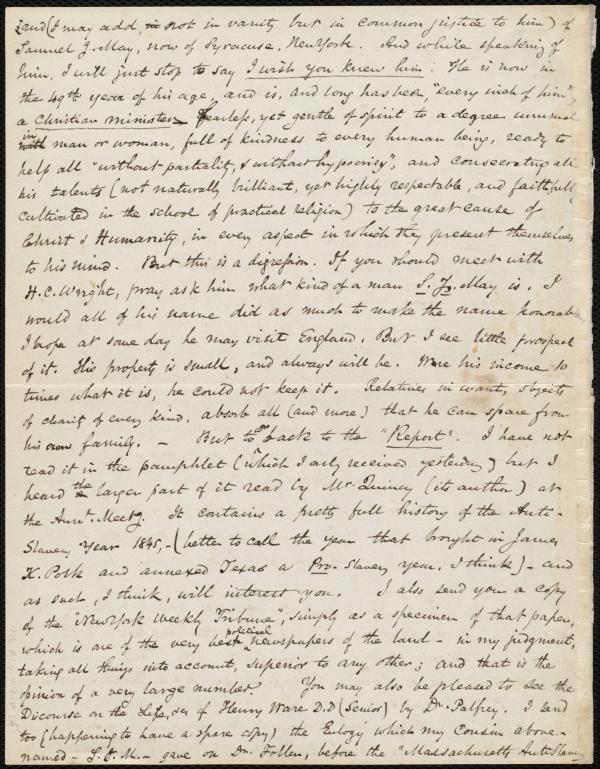 and (I may add, not in vanity but in common justice to him) of
Samuel J. May, now of Syracuse, New York. And while speaking of
him, I will just stop to say I wish you knew him. He is now in
the 49th year of his age, and is, and long has been, "every inch of him",
a Christian minister, fearless, yet gentle of spirit to a degree unusual
in man or woman, full of kindness to every human being, ready to
help all "without partiality, & without hypocrisy", and consecrating all
his talents (not naturally brilliant, yet highly respectable, and faithfully
cultivated in the school of practical religion) to the great cause of
Christ & Humanity, in every aspect in which they present themselves
to his mind. But this is a digression. If you should meet with
H. C. Wright, pray ask him what kind of a man S. J. May is. I
would all of his name did as much to make the name honorable.
I hope at some day he may visit England. But I see little prospect
of it. His property is small, and always will be. Were his income 10
times what it is, he could not keep it. Relatives in want, objects
of charity of every kind, absorb all (and more) that he can spare from
his own family. — But to go back to the "Report". I have not
read it in the pamphlet (which I only received yesterday) but I
heard the larger part of it read by Mr. Quincy (its author) at
the Annl. Meetg. It contains a pretty full history of the Anti-
Slavery Year 1845, — (better to call the year that brought in James
K. Polk and annexed Texas a Pro-Slavery year, I think) — and
as such, I think, will interest you. I also send you a copy
of the "New York Weekly Tribune", simply as a specimen of that paper,
which is one of the very best political newspapers of the land — in my judgment,
taking all things into account, superior to any other; and that is the
opinion of a very large number. You may also be pleased to see the
Discourse on the Life, &c. of Henry Ware D.D (Senior) by Dr. Palfrey. I send
too (happening to have a spare copy) the Eulogy which my cousin above-
named — S. J. M. — gave on Dr. Follen, before the "Massachusetts Anti Slavery